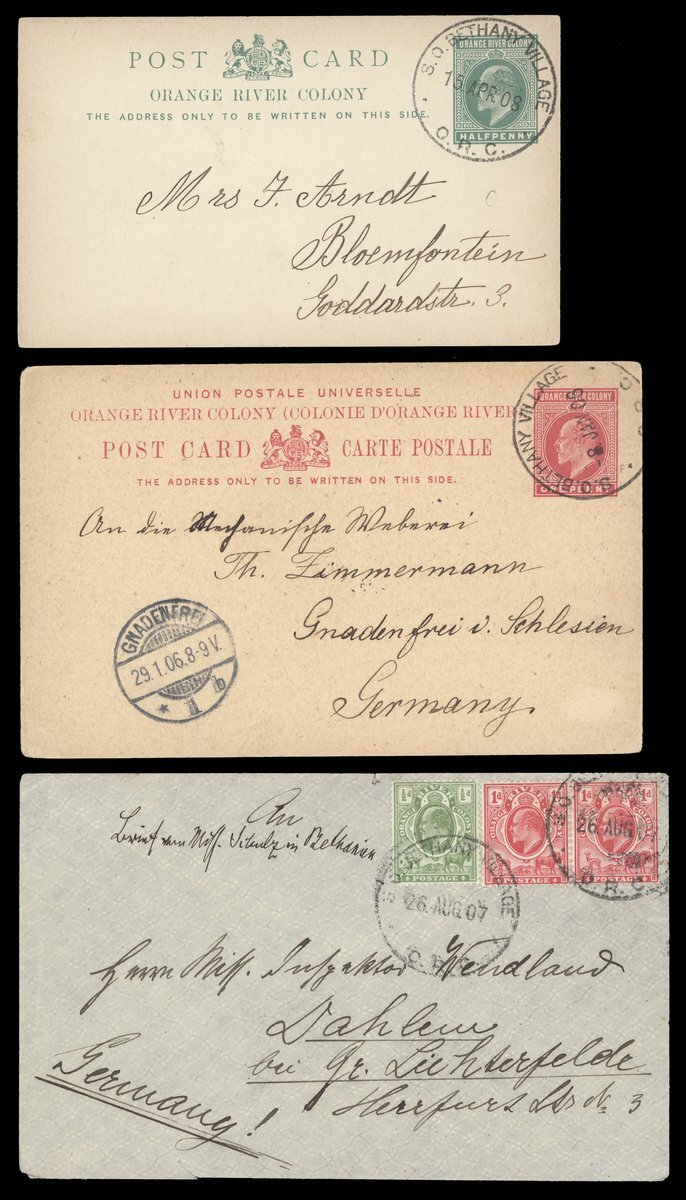 POST CARD
ORANGE RIVER COLONY
THE ADDRESS ONLY TO BE WRITTEN ON THIS SIDE.
ORANGE RIVER COLONY
HALFPENNY
S.O. BETHANY VILLAGE
15 APR. 08
O. R. C.
Mrs F. Arndt
Bloemfontein
Goddardstr. 3.
UNION POSTALE UNIVERSELLE
ORANGE RIVER COLONY (COLONIE D'ORANGE RIVER
POST CARD CARTE POSTALE
THE ADDRESS ONLY TO BE WRITTEN ON THIS SIDE.
ORANGE RIVER COLONY
ONE PENNY
S.O. BETHANY VILLAGE
An die Mechanische Weberei
Th. Zimmermann
Gnadenfrei i. Schlesien
Germany.
GNADENFREI
29.1.06.8-9 V.
* 1 b
½d ½d
ORANGE RIVER COLONY
POSTAGE
1d
ORANGE RIVER COLONY
POSTAGE
1d 1d
ORANGE RIVER COLONY
POSTAGE
BETHANY VILLAGE
26. AUG. 07
O. R. C.
26. AUG. 07
O. R. C.
An
Brief von Miss. in Bethanien
Herrn Miss. Inspektor Wendland
Dahlem
bei Gr. Lichterfelde
Herrfurt Str № 3
Germany!